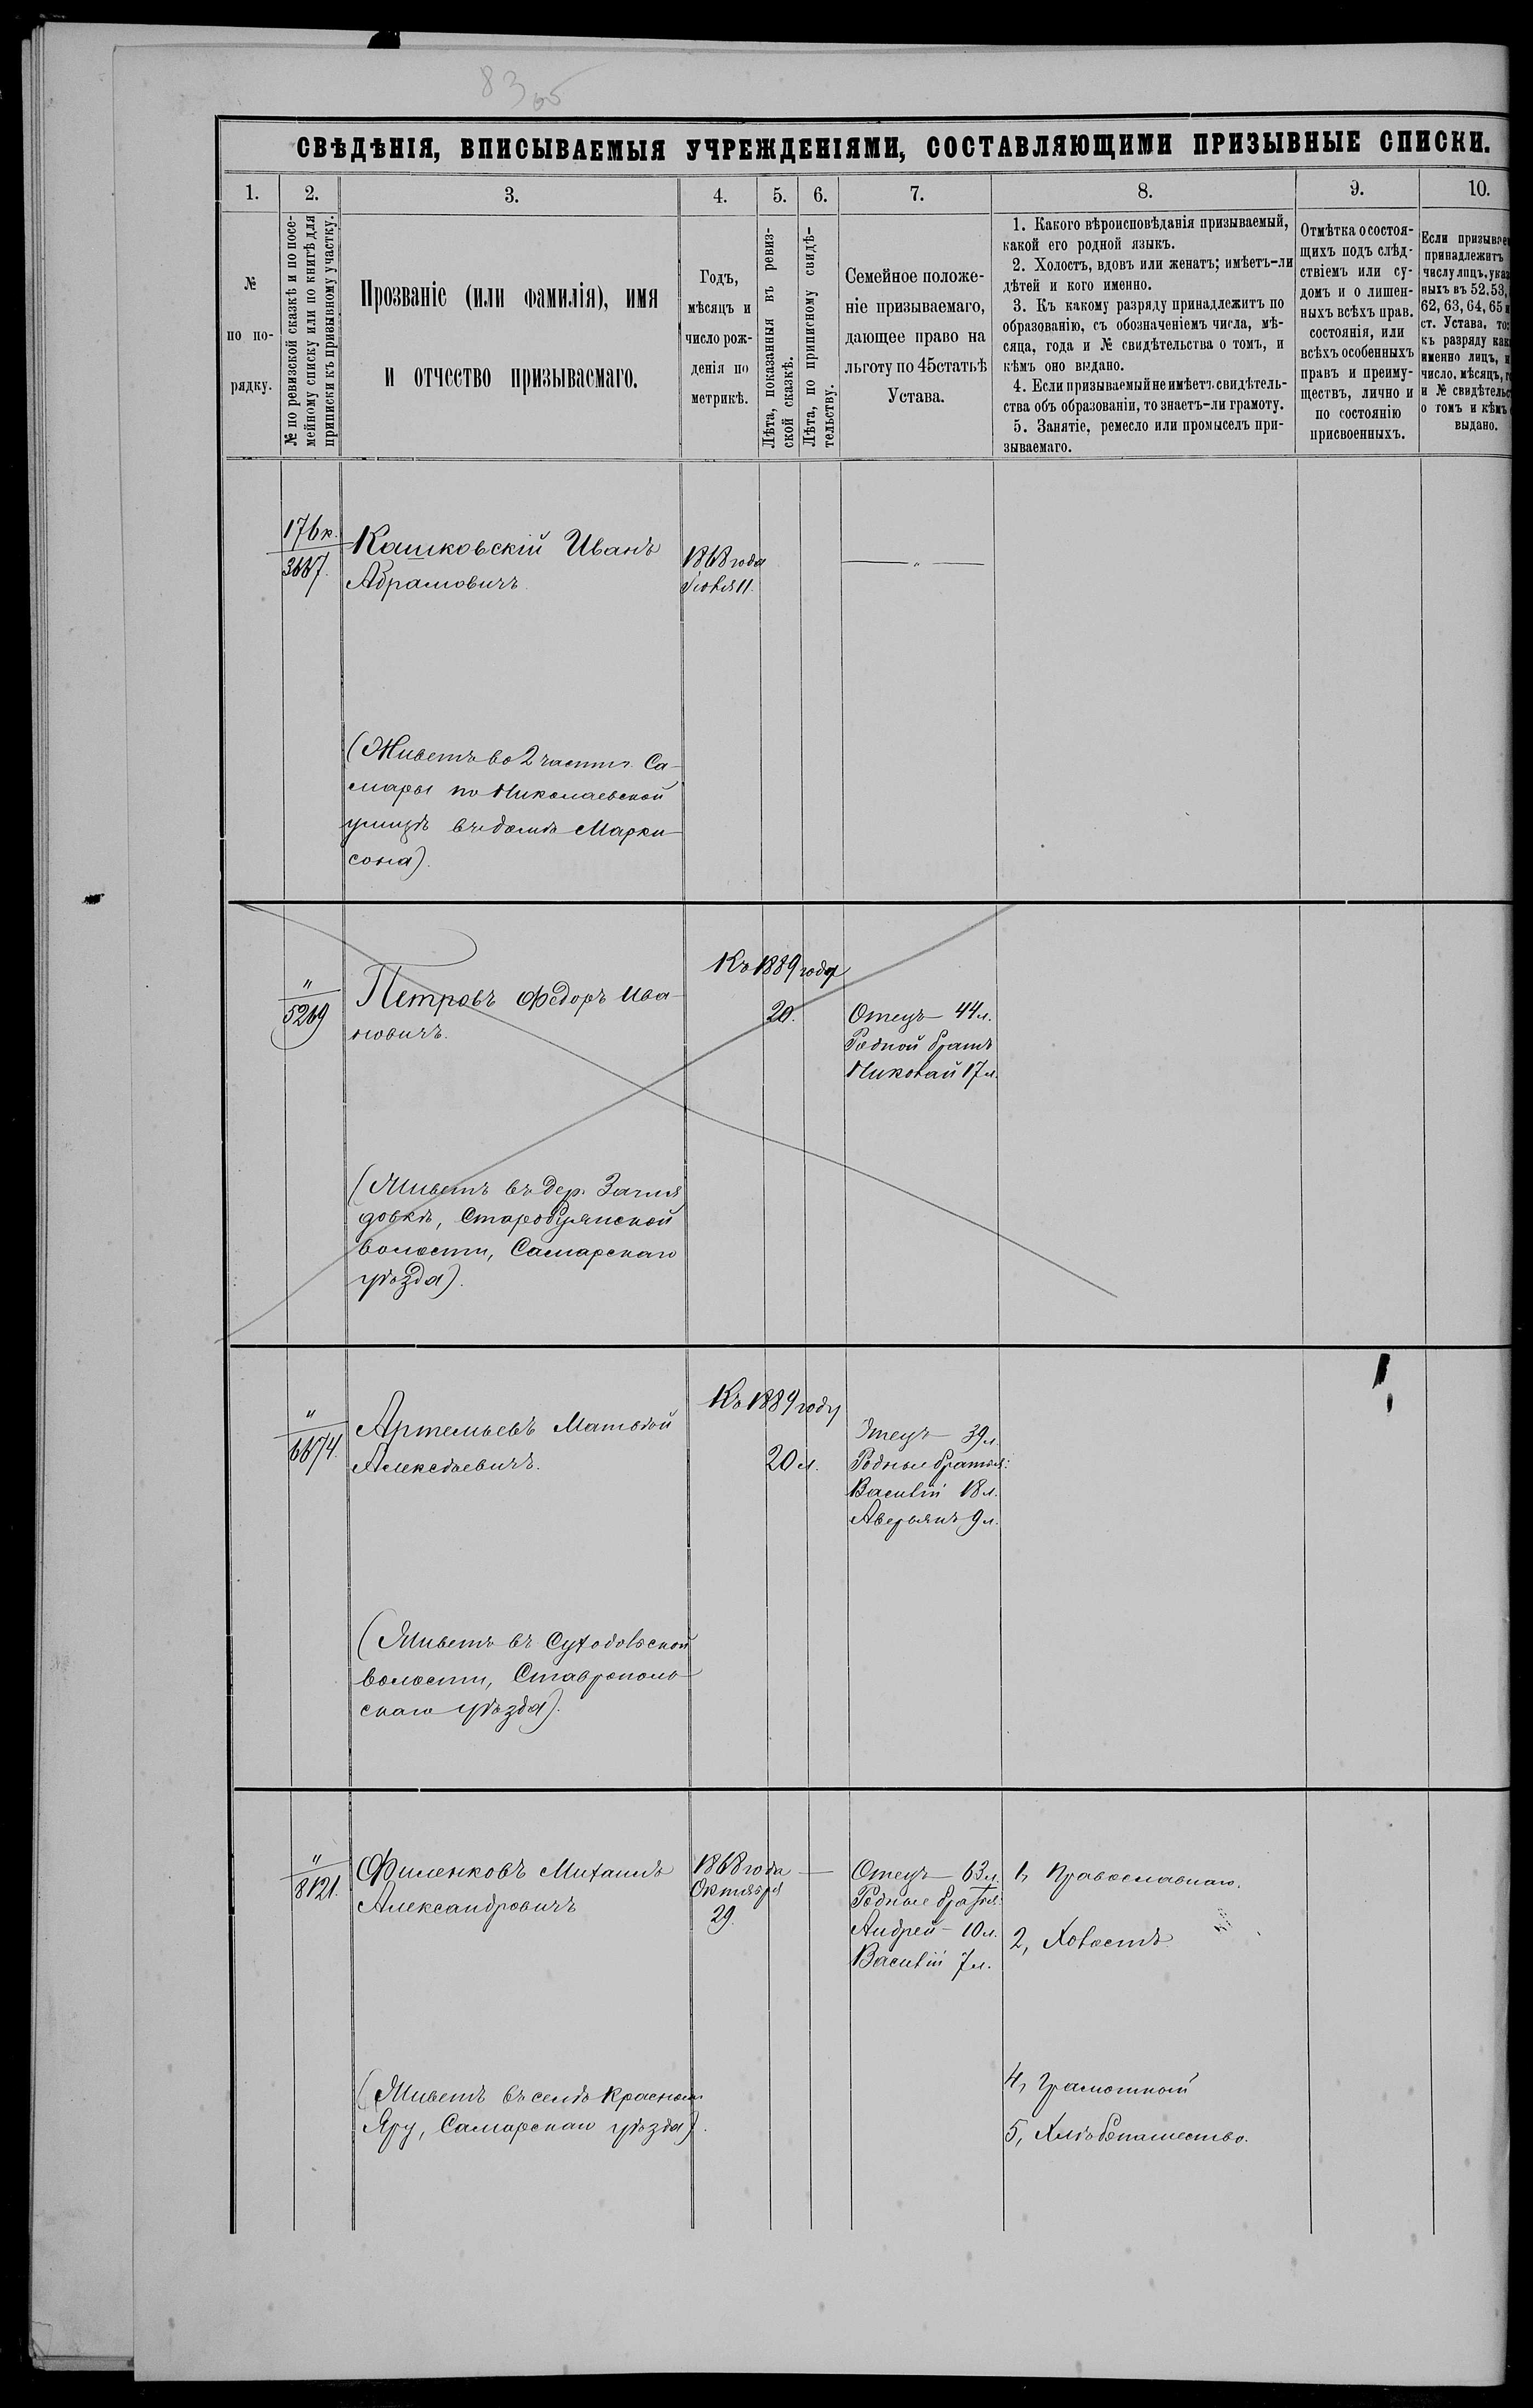 83 об
СВѢДѢНІЯ, ВПИСЫВАЕМЫЯ УЧРЕЖДЕНІЯМИ, СОСТАВЛЯЮЩИМИ ПРИЗЫВНЫЕ СПИСКИ.
1. 2. 3. 4. 5. 6. 7. 8. 9. 10.
№
по по-
рядку.
№ по ревизской сказкѣ и по посе-
мейному списку или по книгѣ для
приписки къ призывному участку.
Прозваніе (или фамилія), имя
и отчество призываемаго.
Годъ,
мѣсяцъ и
число рож-
денія по
метрикѣ.
Лѣта, показанныя въ ревиз-
ской сказкѣ.
Лѣта, по приписному свидѣ-
тельству.
Семейное положе-
ніе призываемаго,
дающее право на
льготу по 45 статьѣ
Устава.
1. Какого вѣроисповѣданія призываемый,
какой его родной языкъ.
2. Холостъ, вдовъ или женатъ; имѣетъ-ли
дѣтей и кого именно.
3. Къ какому разряду принадлежитъ по
образованію, съ обозначеніемъ числа, мѣ-
сяца, года и № свидѣтельства о томъ, и
кѣмъ оно выдано.
4. Если призываемый не имѣетъ свидѣтель-
ства объ образованіи, то знаетъ-ли грамоту.
5. Занятіе, ремесло или промыселъ при-
зываемаго.
Отмѣтка о состоя-
щихъ подъ слѣд-
ствіемъ или су-
домъ и о лишен-
ныхъ всѣхъ прав.
состоянія, или
всѣхъ особенныхъ
правъ и преиму-
ществъ, лично и
по состоянію
присвоенныхъ.
Если призывае
принадлежитъ
числу лицъ, указ
ныхъ въ 52, 53,
62, 63, 64, 65 и
ст. Устава, то:
къ разряду как
именно лицъ, и
число, мѣсяцъ, г
и № свидѣтельс
о томъ и кѣмъ
выдано.
176 к.
3687.
Кашковскій Иванъ
Абрамовичъ.
1868 года
Іюля 11.
— „ —
(Живетъ во 2 части г. Са-
мары по Николаевской
улицѣ въ домѣ Марки-
сона).
„
5269
Петровъ Федоръ Ива-
новичъ.
Къ 1889 году
20.
Отецъ — 44 л.
Родной братъ
Николай 17 л.
(Живетъ въ дер.
волости, Самарскаго
уѣзда).
„
6674.
Артемьевъ Матвѣй
Алексѣевичъ.
Къ 1889 году
20 л.
Отецъ — 39 л.
Родные братья:
Василій 18 л.
Аверьянъ 9 л.
(Живетъ въ Суходольской
волости, Ставрополь-
скаго уѣзда).
„
8121.
Филенковъ Михаилъ
Александровичъ
1868 года
Октября
29.
—
Отецъ — 63 л.
Родные братья:
Андрей — 10 л.
Василій 7 л.
1, Православнаго.
2, Холостъ
(Живетъ въ селѣ Красномъ
Яру, Самарскаго уѣзда).
4, Грамотный
5, Хлѣбопашество.